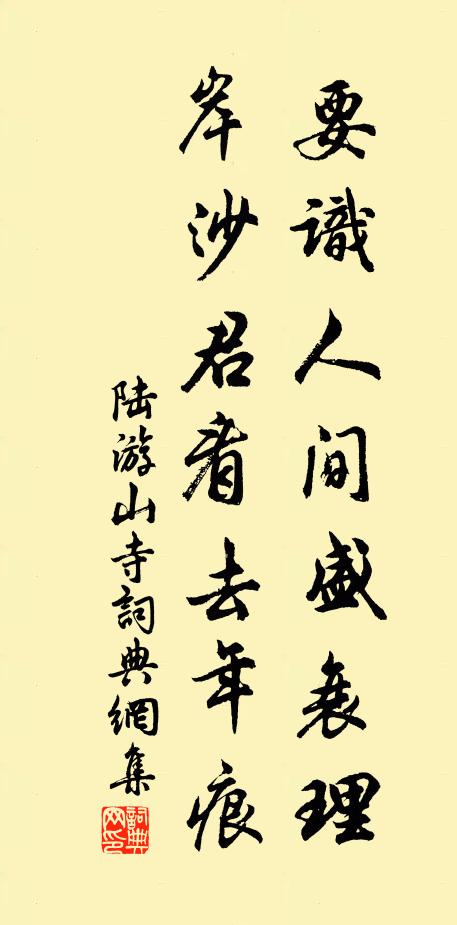 要識人间盛衰理
岸沙君看去年痕
陆游山寺詞典網集
詞典网印